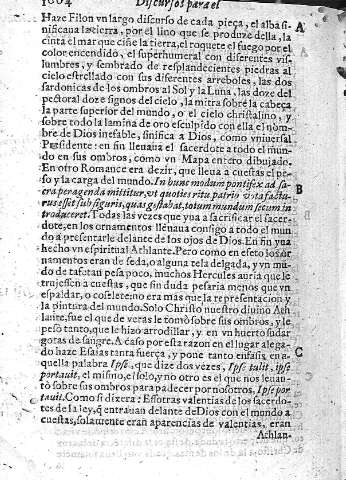 1004 Discursos para el
Haze Filon vn largo discurso de cada pieça, el alba si-
nificaua la tierra, por el lino que se produze della, la
cinta el mar que ciñe la tierra, el roquete el fuego por el
color encendido, el superhumeral con diferentes vis-
lumbres, y sembrado de resplandecientes piedras al
cielo estrellado con sus diferentes arreboles, las dos
sardonicas de los ombros al Sol y la Luna, las doze del
pectoral doze signos del cielo, la mitra sobre la cabeça
la parte superior del mundo, o el cielo christalino, y
sobre todo la lamina de oro esculpido con ella el nom-
bre de Dios inefable, sinifica a Dios, como vniuersal
Presidente: en fin lleuaua el sacerdote a todo el mun-
do en sus ombros, como vn Mapa entero dibujado.
En otro Romance era dezir, que lleua a cuestas el pe-
so y la carga del mundo. In hunc modum pontifex ad sa-
cra peragenda mittitur, vt quoties ritu patrio vota factu-
rus esset sub figuris, quas gestabat, totum mundum secum in
troduceret. Todas las vezes que yua a sacrificar el sacer-
dote, en los ornamentos lleuaua consigo a todo el mun
do a presentarle delante de los ojos de Dios. En fin yua
hecho vn espiritual Athlante. Pero como en efeto los or
namentos eran de seda, o alguna tela delgada, y vn mũ-
do de tafetan pesa poco, muchos Hercules auria que le
trujessen a cuestas, que sin duda pesaria menos que vn
espaldar, o coselete: no era mas que la representacion y
la pintura del mundo. Solo Christo nuestro diuino Ath
lante, fue el que de veras le tomò sobre sus ombros, y le
pesò tanto, que le hizo arrodillar, y en vn huerto sudar
gotas de sangre. A caso por esta razon en el lugar alega-
do haze Esaias tanta fuerça, y pone tanto enfasis, en a-
quella palabra Ipse, que dize dos vezes, Ipse tulit, ipse
portauit, el mismo, el solo, y no otro es el que nos leuan-
tò sobre sus ombros para padecer por nosotros. Ipse por
tauit. Como si dixera: Essotras valentias de los sacerdo-
tes de la ley, q̃ entrauan delante de Dios con el mundo a
cuestas, solamente eran aparencias de valentias, eran
Athlan-
A
B
C